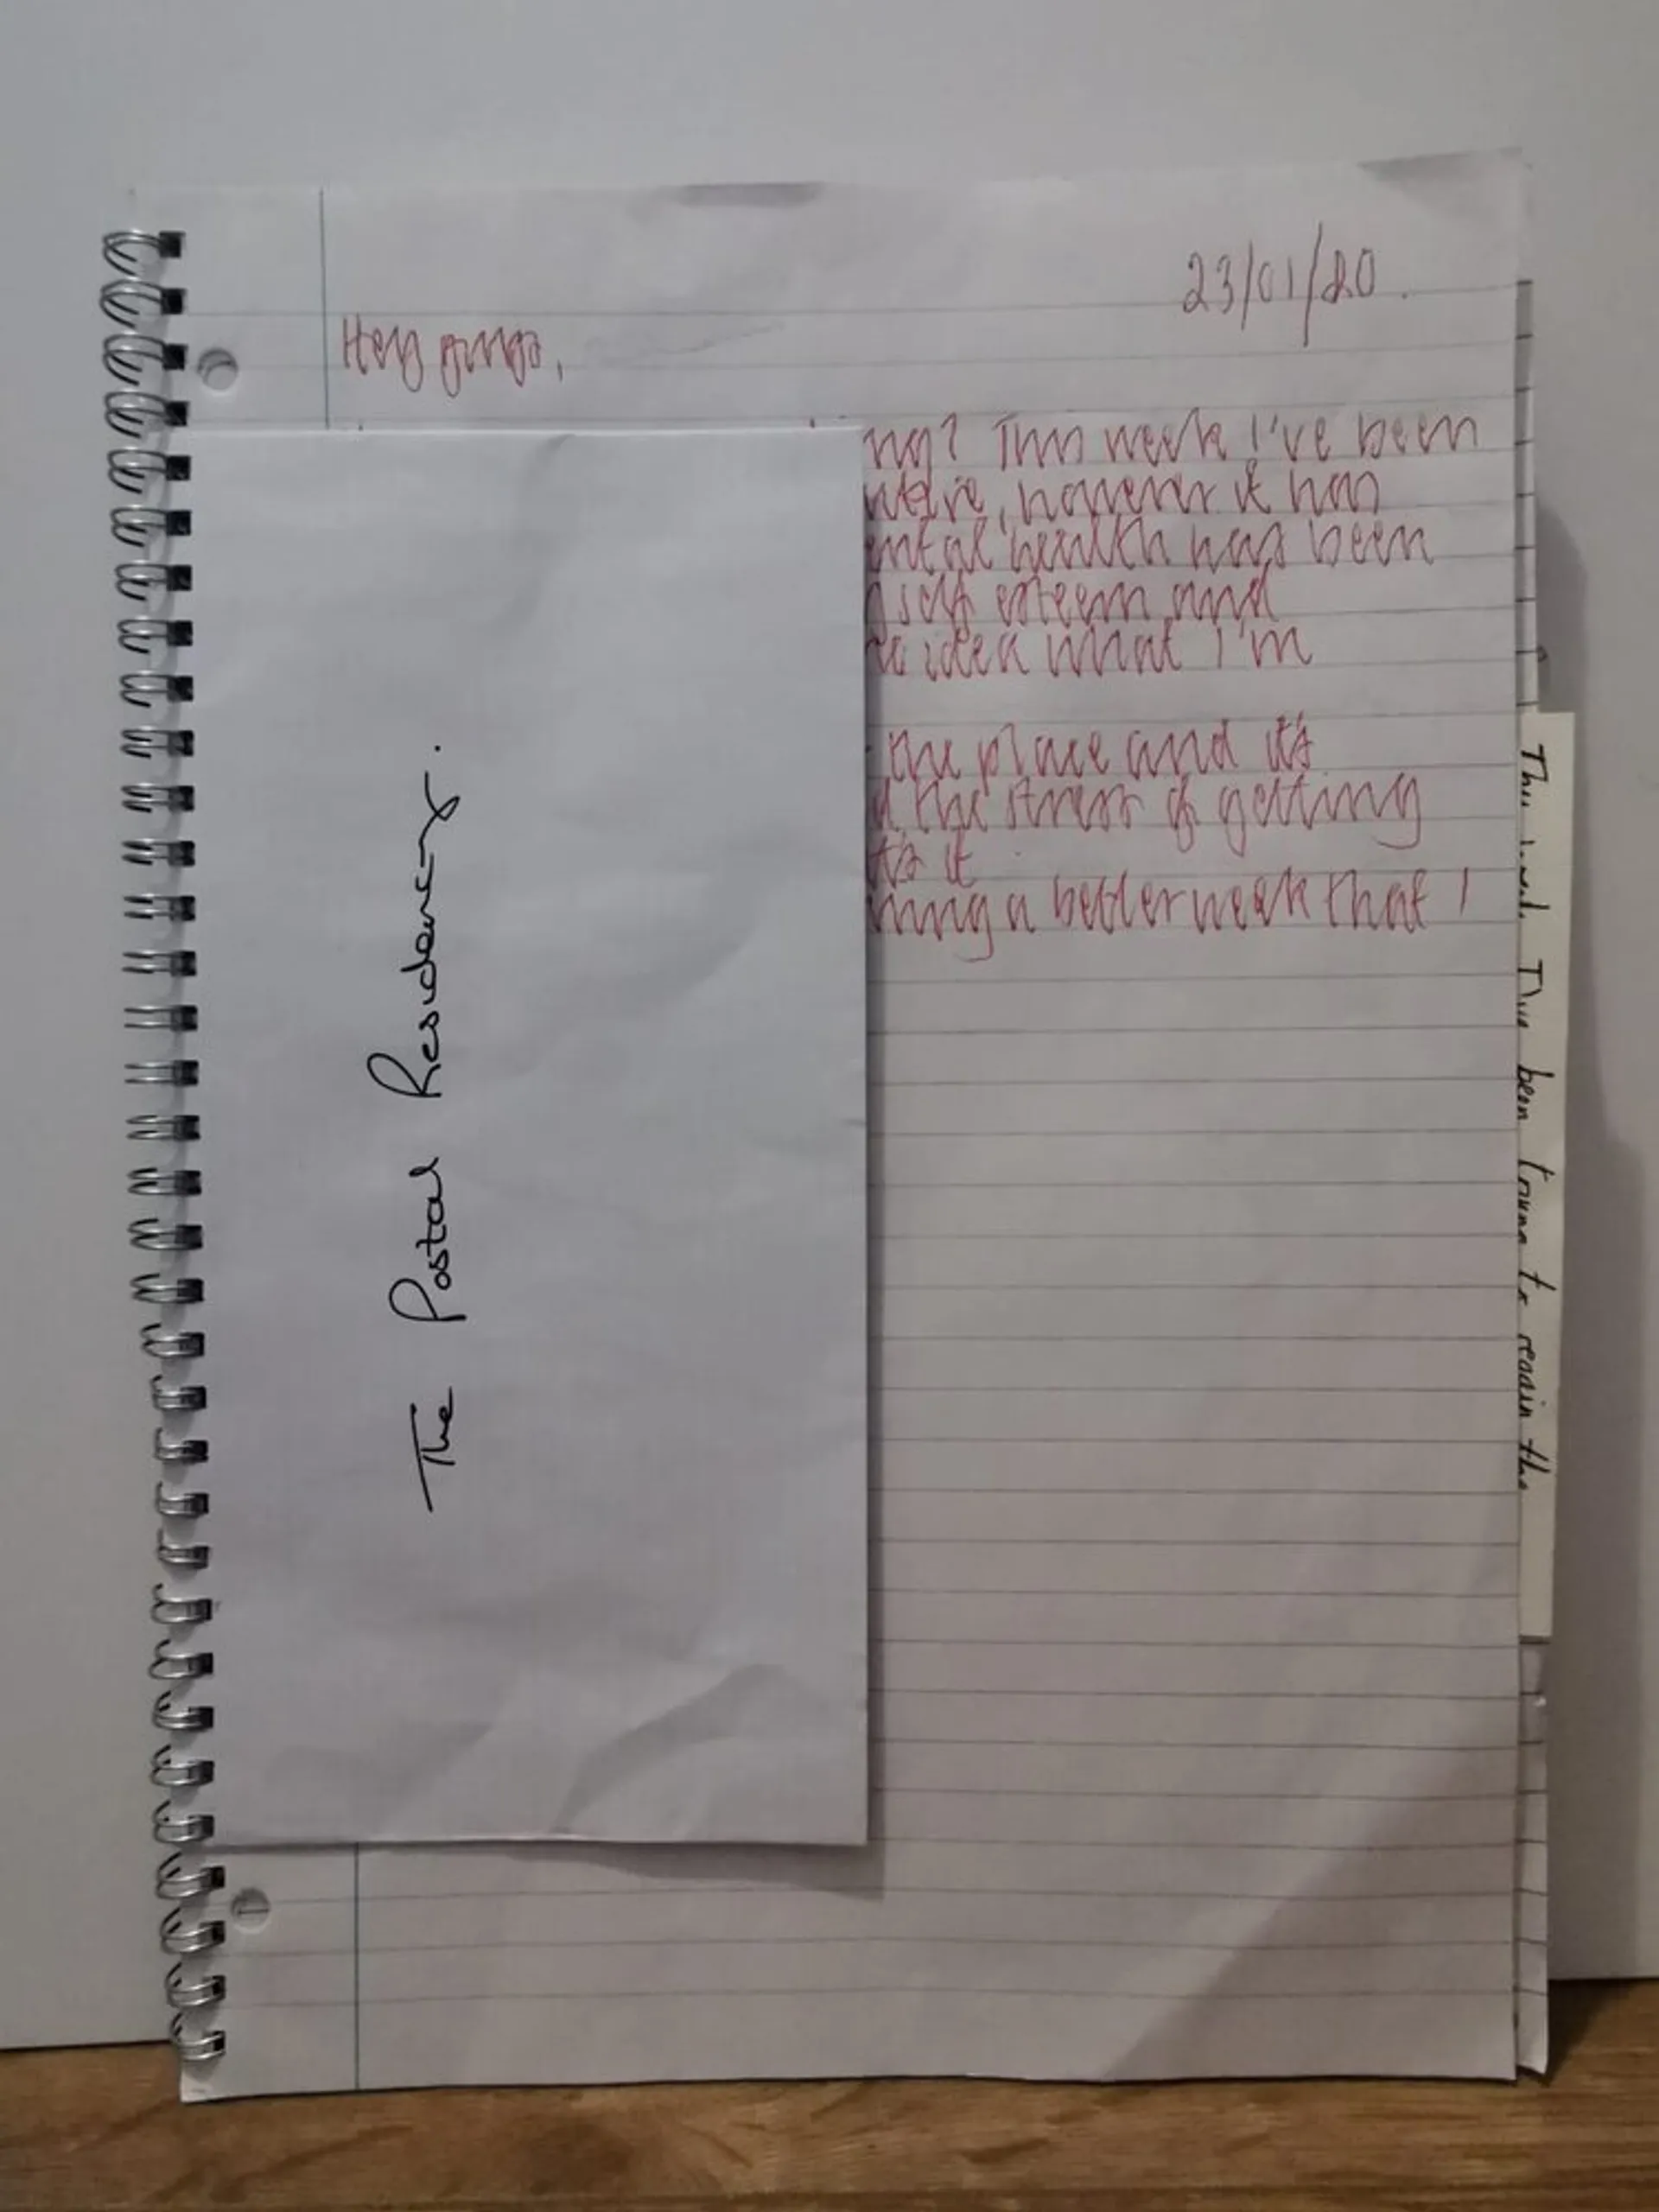 23/01/20.
Hey guys,
This week I've been
, however it has
health has been
self esteem and
idea what I'm
the place and it's
the stress of getting
it
a better week that I
The Postal Residency.
This week I've been trying to regain the